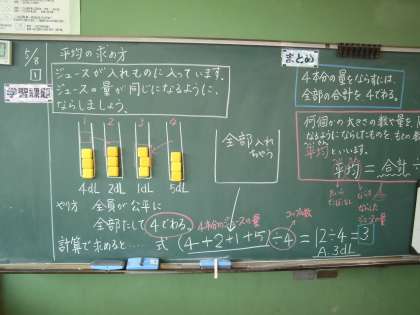 5/8
1
平均の求め方
まとめ
ジュースが入れものに入っています。
ジュースの量が同じになるように、
ならしましょう。
4本分の量をならすには、
全部の合計を4でわる。
何個かの大きさの数や量を
なるようにならしたものを
平均といいます。
平均=合計÷
1
2
3
4
4dL
2dL
1dL
5dL
全部入れ
ちゃう
やり方 全員が公平に
全部たして4でわる。
4本分のジュースの量
計算で求めると…… 式 (4+2+1+5)÷4=12÷4=3
A.3dL